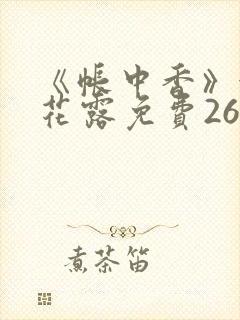 《帐中香》
花露免费26
煮茶笛